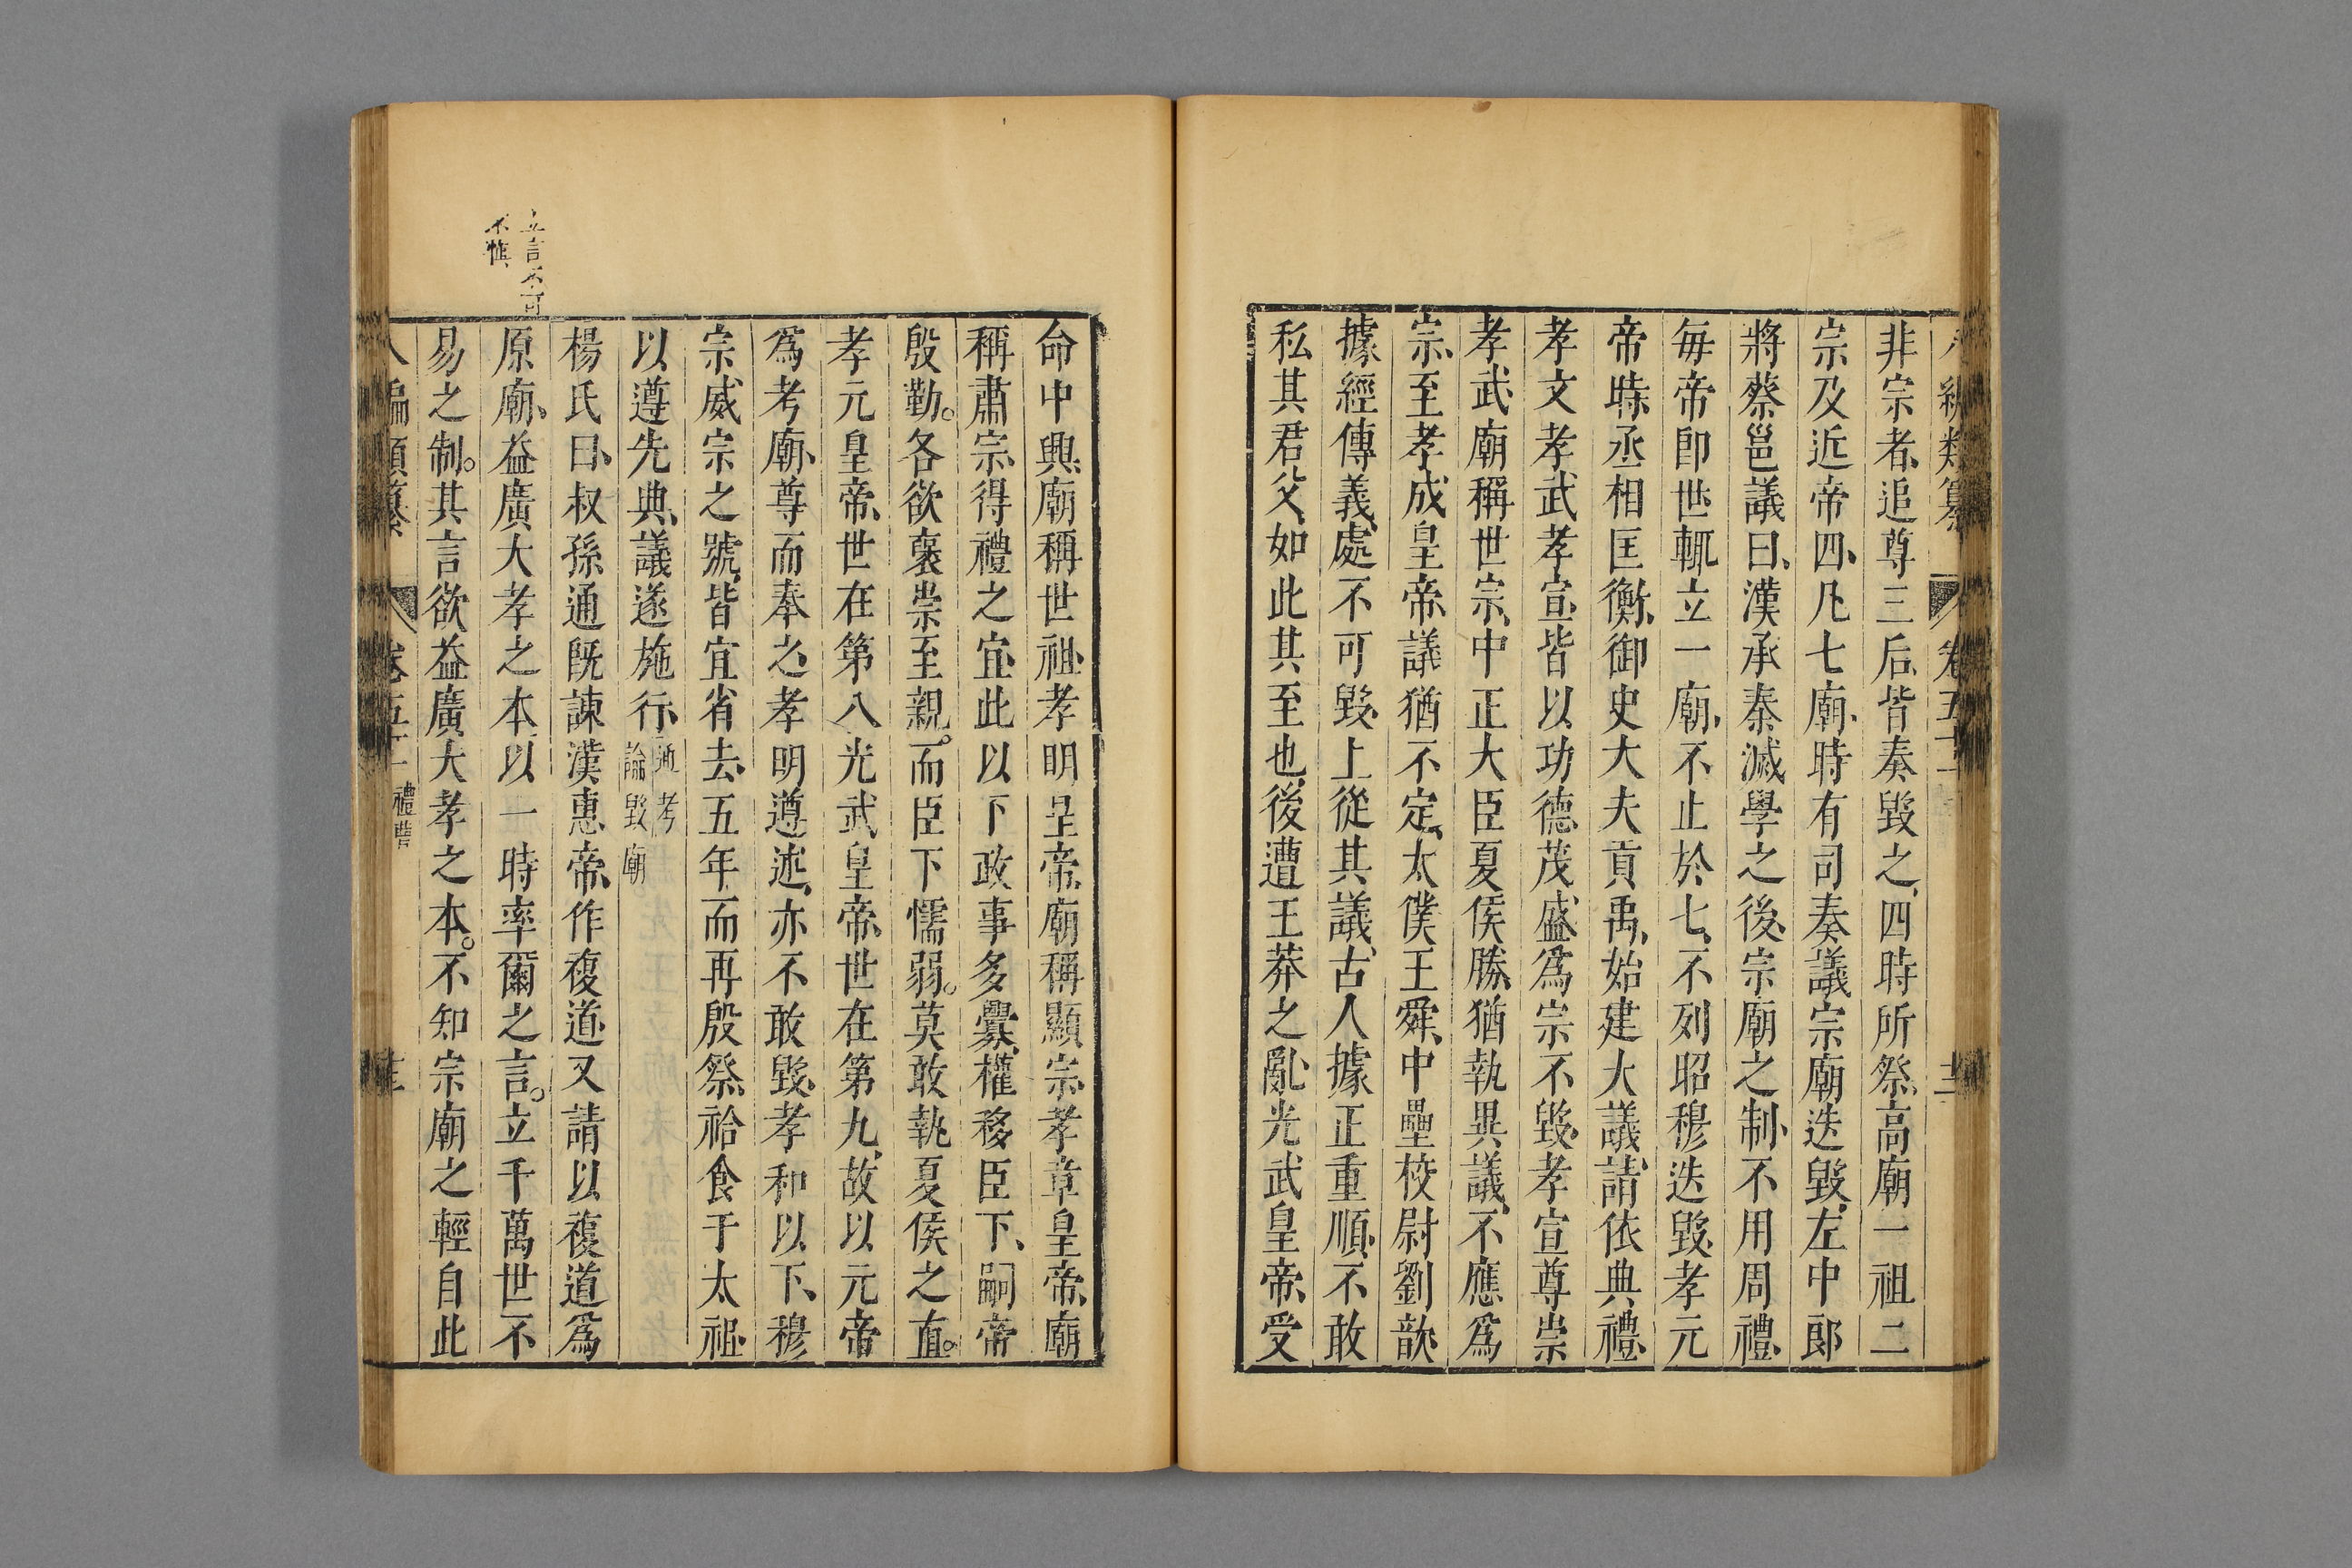 編類纂 卷五十一
非宗者、追尊三后、皆奏毀之、四時所祭、高廟一祖二
宗、及近帝四、凡七廟、時有司奏議宗廟迭毀、左中郎
將蔡邕議曰、漢承秦滅學之後、宗廟之制、不用周禮、
每帝卽世、輒立一廟、不止於七、不列昭穆迭毀、孝元
帝時、丞相匡衡、御史大夫貢禹、始建大議、請依典禮、
孝文孝武孝宣、皆以功德茂盛、爲宗不毀、孝宣尊崇
孝武、廟稱世宗、中正大臣夏侯勝、猶執異議、不應爲
宗、至孝成皇帝、議猶不定、太僕王舜、中壘校尉劉歆、
據經傳義、處不可毀、上從其議、古人據正重順、不敢
私其君父、如此其至也、後遭王莽之亂、光武皇帝、受
命中興、廟稱世祖、孝明皇帝、廟稱顯宗、孝章皇帝、廟
稱肅宗、得禮之宜、此以下政事多釁、權移臣下、嗣帝
殷勤。各欲襃崇至親。而臣下懦弱。莫敢執夏侯之直。
孝元皇帝、世在第八、光武皇帝、世在第九、故以元帝
爲考廟、尊而奉之、孝明遵述、亦不敢毀、孝和以下、穆
宗威宗之號、皆宜省去、五年而再殷祭、祫食于太祖、
以遵先典、議遂施行、通考
論毀廟
楊氏曰、叔孫通旣諫漢惠帝、作複道、又請以複道爲
原廟、益廣大孝之本、以一時率爾之言。立千萬世不
易之制。其言欲益廣大孝之本。不知宗廟之輕自此
立言不可
不愼
編類纂 卷五十一 禮